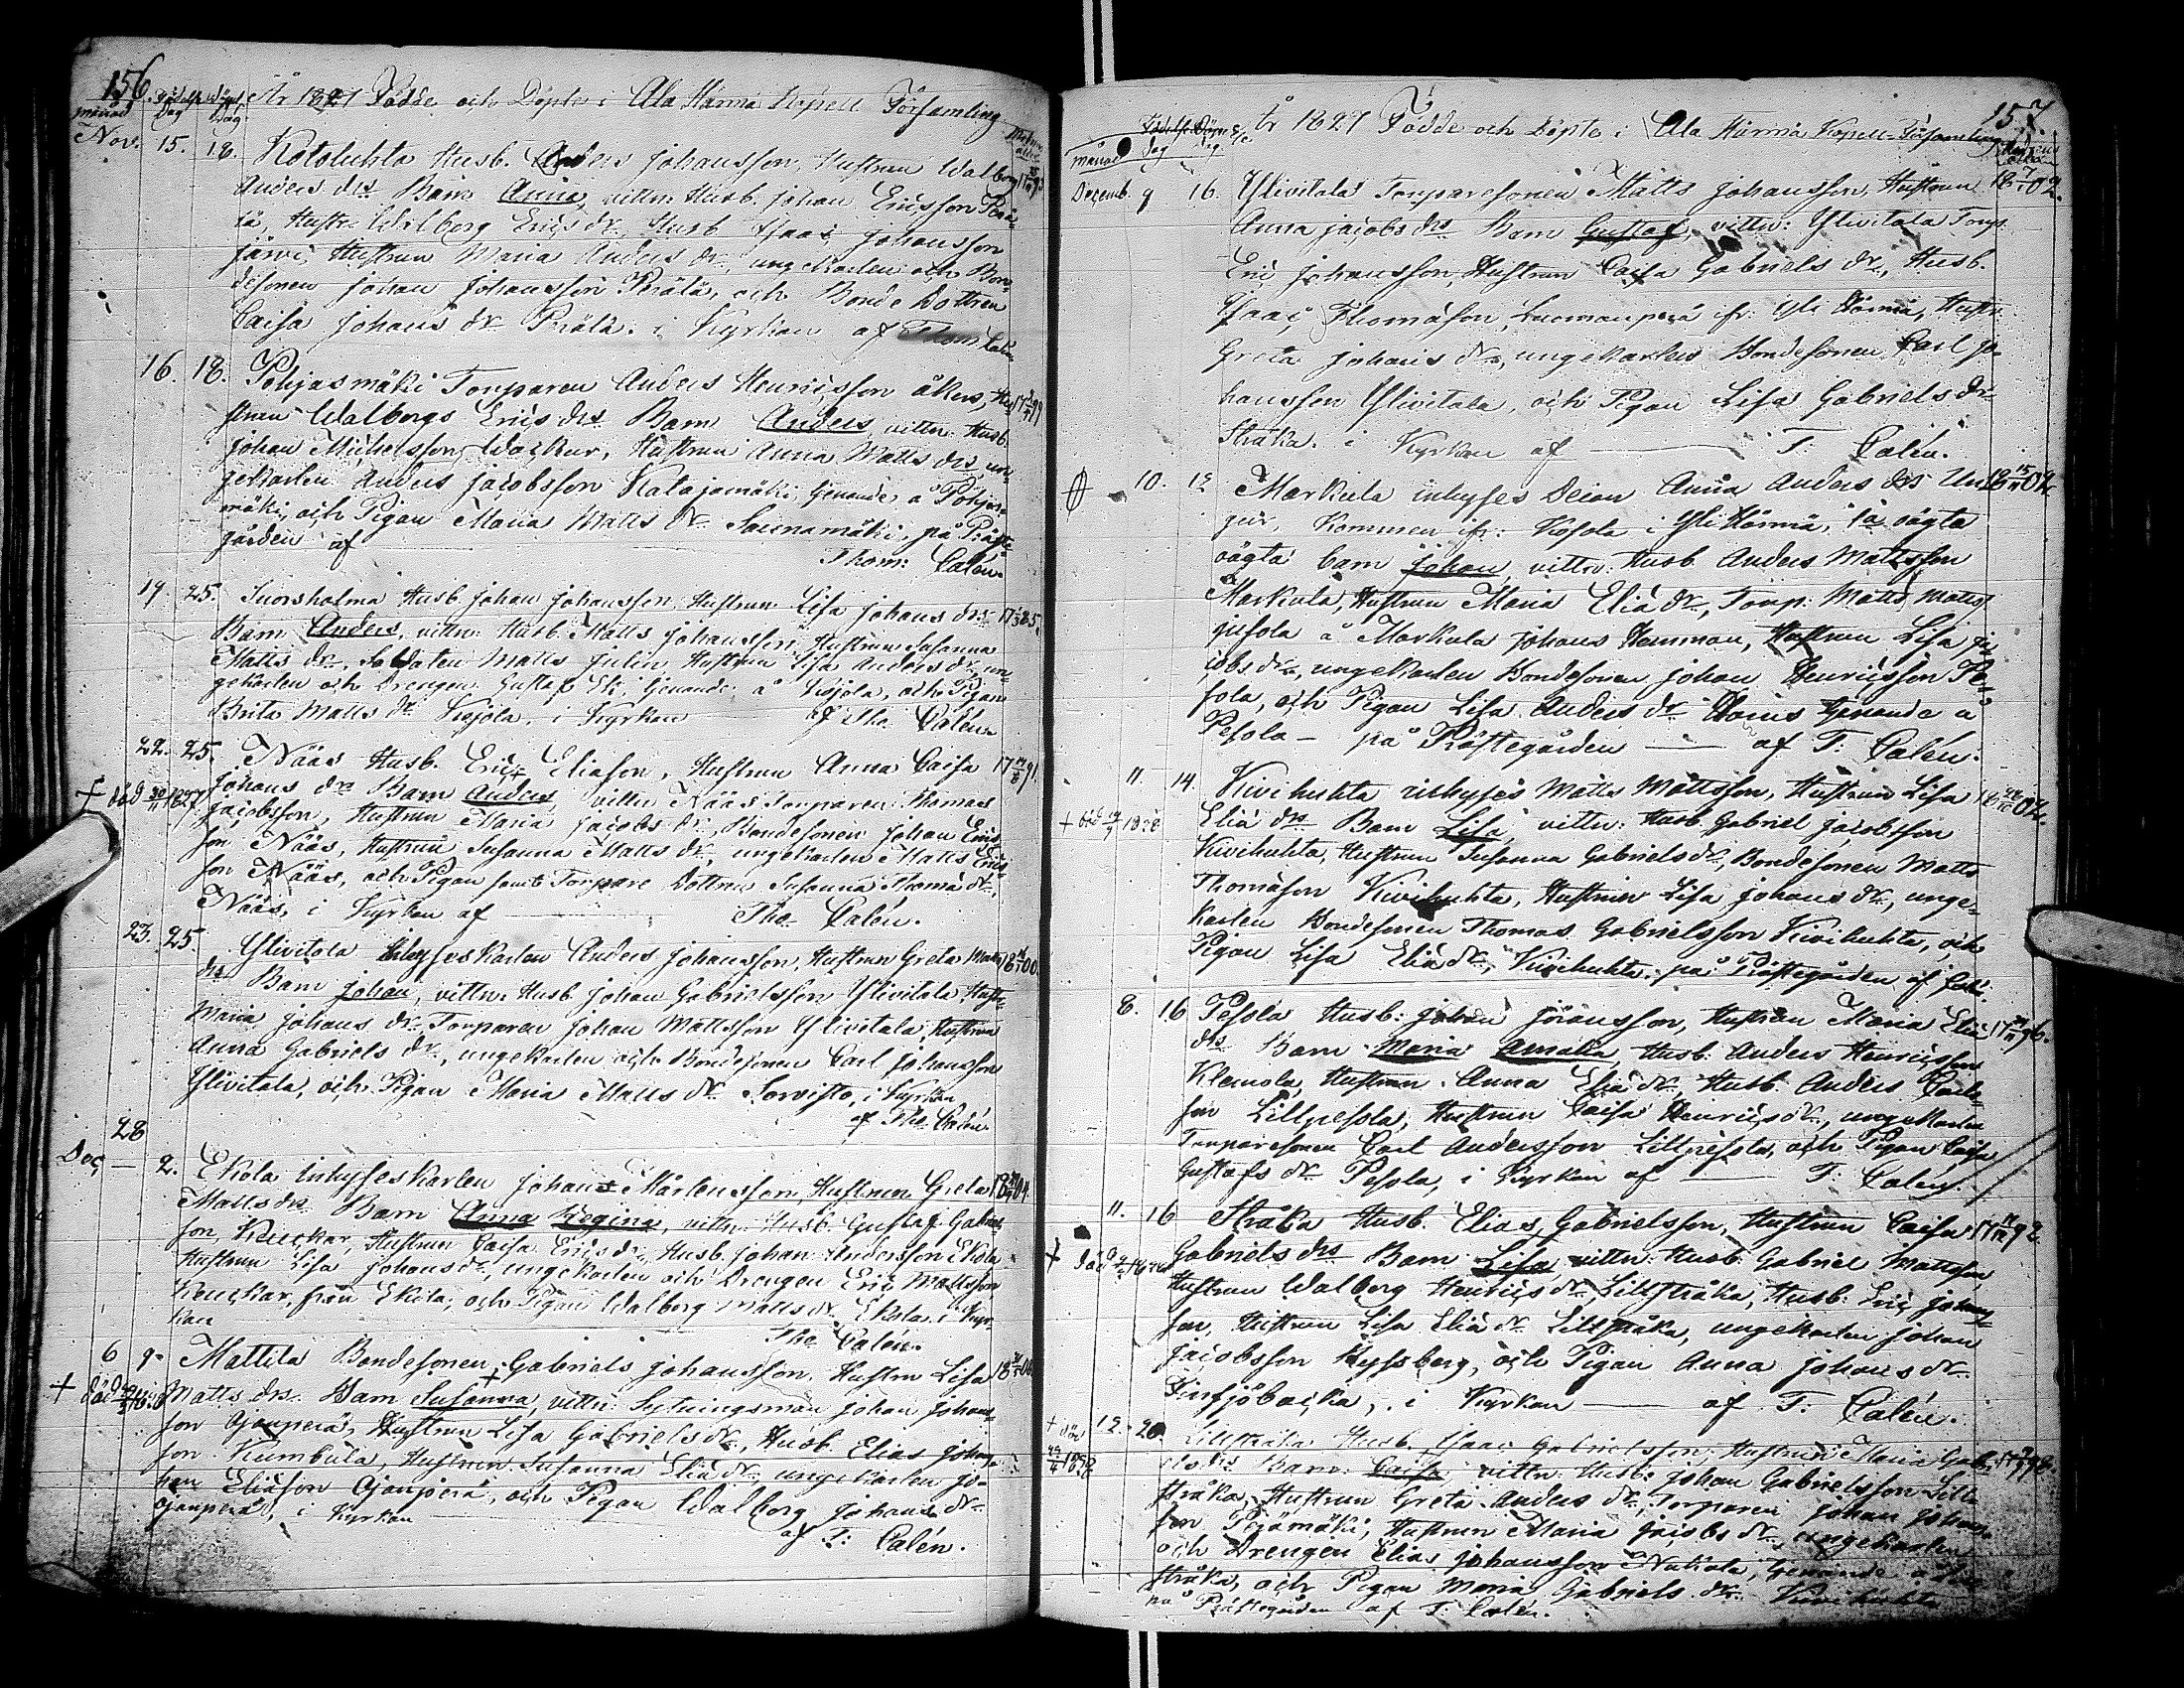 156.
År 1827 Födde och Döpte i Ala Härmä Kapell Församling
månad Dag Dag
Nov. 15. 18. Kotoluhta Husb. Anders Johansson, Hustrun Walborg
Anders drs Barn Anna, vittn: Husb. Johan Ericsson Perä-
lä, Hustr. Walborg Erics dr. Husb Isaac Johansson
Järvi, Hustrun Maria Anders dr, ungekarlen och Bon-
desonen Johan Johansson Perälä, och Bonde Dottren
Caisa Johans dr Perälä. i Kyrkan af Thom: Calén
16. 18. Pohjasmäki Torparen Anders Henricsson åkers, Hu-
strun Walborgs Erics drs Barn Anders vittn: Husb.
Johan Michelsson Wacker, Hustrun Anna Matts dr, un-
gekarlen Anders Jacobsson Katajamäki tjenande å Pohjas-
mäki, och Pigan Maria Matts dr Saunamäki, på Präste-
gården af Thom: Calén.
19. 25. Suorsholma Husb Johan Johansson, Hustrun Lisa Johans drs
Barn Anders, vittn: Husb. Matts Johansson, Hustrun Susanna
Matts dr, Soldaten Matts Julin Hustrun Lisa Anders dr, un-
gekarlen och Drengen Gustaf Eli, tjenande å Kojola, och Pigan
Brita Matts dr Kojola, i Kyrkan af Tho. Calén
22. 25. Nääs Husb. Eric Eliason, Hustrun Anna Caisa
† död 30/11 1827 Johans drs Barn Anders, vittn Nääs Torparen Thomas
Jacobsson, Hustrun Maria Jacobs dr, Bondesonen Johan Erics-
son Nääs, Hustrun Susanna Matts dr, ungekarlen Matts Erics-
son Nääs, och Pigan samt Torpare Dottren Susanna Thoma dr
Nääs, i Kyrkan af Tho. Calén.
23. 25. Ylivitala Inhyseskarlen Anders Johansson, Hustrun Greta Matts
drs Barn Johan, vittn: Husb. Johan Gabrielsson Ylivitala Hustr.
Maria Johans dr, Torparen Johan Mattsson Ylivitala, Hustrun
Anna Gabriels dr, ungekarlen och Bondesonen Carl Johansson
Ylivitala, och Pigan Maria Matts dr Sorvisto, i Kyrkan
af Tho. Calén.
28
Dec — 2. Ekola Inhyseskarlen Johan Mårtensson, Hustrun Greta
Matts drs Barn Anna Regina, vittn: Husb. Gustaf Gabriels-
son, Keuckar, Hustrun Caisa Erics dr, Husb. Johan Andersson Ekola
Hustrun Lisa Johans dr, ungekarlen och Drengen Eric Mattsson
Keuckar, från Ekola, och Pigan Walborg Matts dr Ekola. i Kyr-
kan Tho Calén.
6 9. Mattila Bondesonen Gabriels Johansson, Hustrn Lisa
† död Matts drs Barn Susanna, vittn: Sytningsman Johan Johans-
son Ojanperä, Hustrun Lisa Gabriels dr, Husb. Elias Johans-
son Kumbula, Hustrun Susanna Elia dr, ungekarlen Jo-
han Eliason Ojanperä, och Pigan Walborg Johans dr
Ojanperä, i Kyrkan af T: Calén.
157
År 1827 Födde och Döpte i Ala Härmä Kapell-Församling
månad Dag
Decemb. 9 16. Ylivitala Torparesonen Matts Johansson, Hustrun 18 7/1 02.
Anna Jacobs drs Barn Gustaf, vittn: Ylivitala Torp.
Eric Johansson, Hustrun Caisa Gabriels dr, Husb.
Isaac Thomason, Luomanperä ifr: Yli Härmä, Hustr:
Greta Johans dr, ungekarlen Bondesonen Carl Jo-
hansson Ylivitala, och Pigan Lisa Gabriels dr
Stråka. i Kyrkan af — T: Calén.
10. 12 Markula inhyses Deian Anna Anders drs
Kommen ifr: Kosola i Yli Härmä,
oägta barn Johan, vittn: Husb Anders Mattsson
Markula, Hustrun Maria Elia dr, Torp: Matts Matts
Jusola å Markula Johans Hemman, Hustrun Lisa Ja-
cobs dr, ungekarlen Bondesonen Johan Henricsson Pe-
sola, och Pigan Lisa Anders dr tjenande å
Pesola — på Prästegården — af T: Calén.
11. 14. Kivihuhta inhyses Matts Mattsson, Hustrun Lisa
† död Elia drs Barn Lisa, vittn: Husb Gabriel Jacobsson
Kivihuhta, Hustrun Susanna Gabriels dr, Bondesonen Matts
Thomason Kivihuhta, Hustrun Lisa Johans dr, unge-
karlen Bondesonen Thomas Gabrielsson Kivihuhta, och
Pigan Lisa Elia dr, Kivihuhta. på Prästegården af
8. 16 Pesola Husb: Johan Jöransson, Hustrun Maria Elia
drs Barn Maria Amalia Husb: Anders Henricsson
Klemola, Hustrun Anna Elia dr, Husb. Anders Carls-
son Lillpesola, Hustrun Caisa Henrics dr, ungekarlen
Torparesonen Carl Andersson Lillpesola, och Pigan Caisa
Gustafs dr Pesola, i Kyrkan af — T: Calén.
11. 16 Stråka Husb. Elias Gabrielsson, Hustrun Caisa
† död Gabriels drs Barn Lisa, vittn: Husb: Gabriel Mattsson,
Hustrun Walborg Henrics dr, Lillstråka, Husb: Eric Johans-
son, Hustrun Lisa Elia dr Lillstråka, ungekarlen Johan
Jacobsson Nyssberg, och Pigan Anna Johans dr
Finsjöbacka, i Kyrkan — af T: Calén.
† död 12. 20. Lillstråka Husb. Isaac Gabrielsson, Hustrun Maria Gabri-
els drs Barn: Caisa, vittn: Husb: Johan Gabrielsson Lill-
stråka, Hustrun Greta Anders dr, Torparen Johan Johans-
son Pejämäki, Hustrun Maria Jacobs dr, ungekarlen
och Drengen Elias Johansson tjenande å Lill-
stråka, och Pigan Maria Gabriels dr Kivihuhta
på Prästegården af T: Calén.